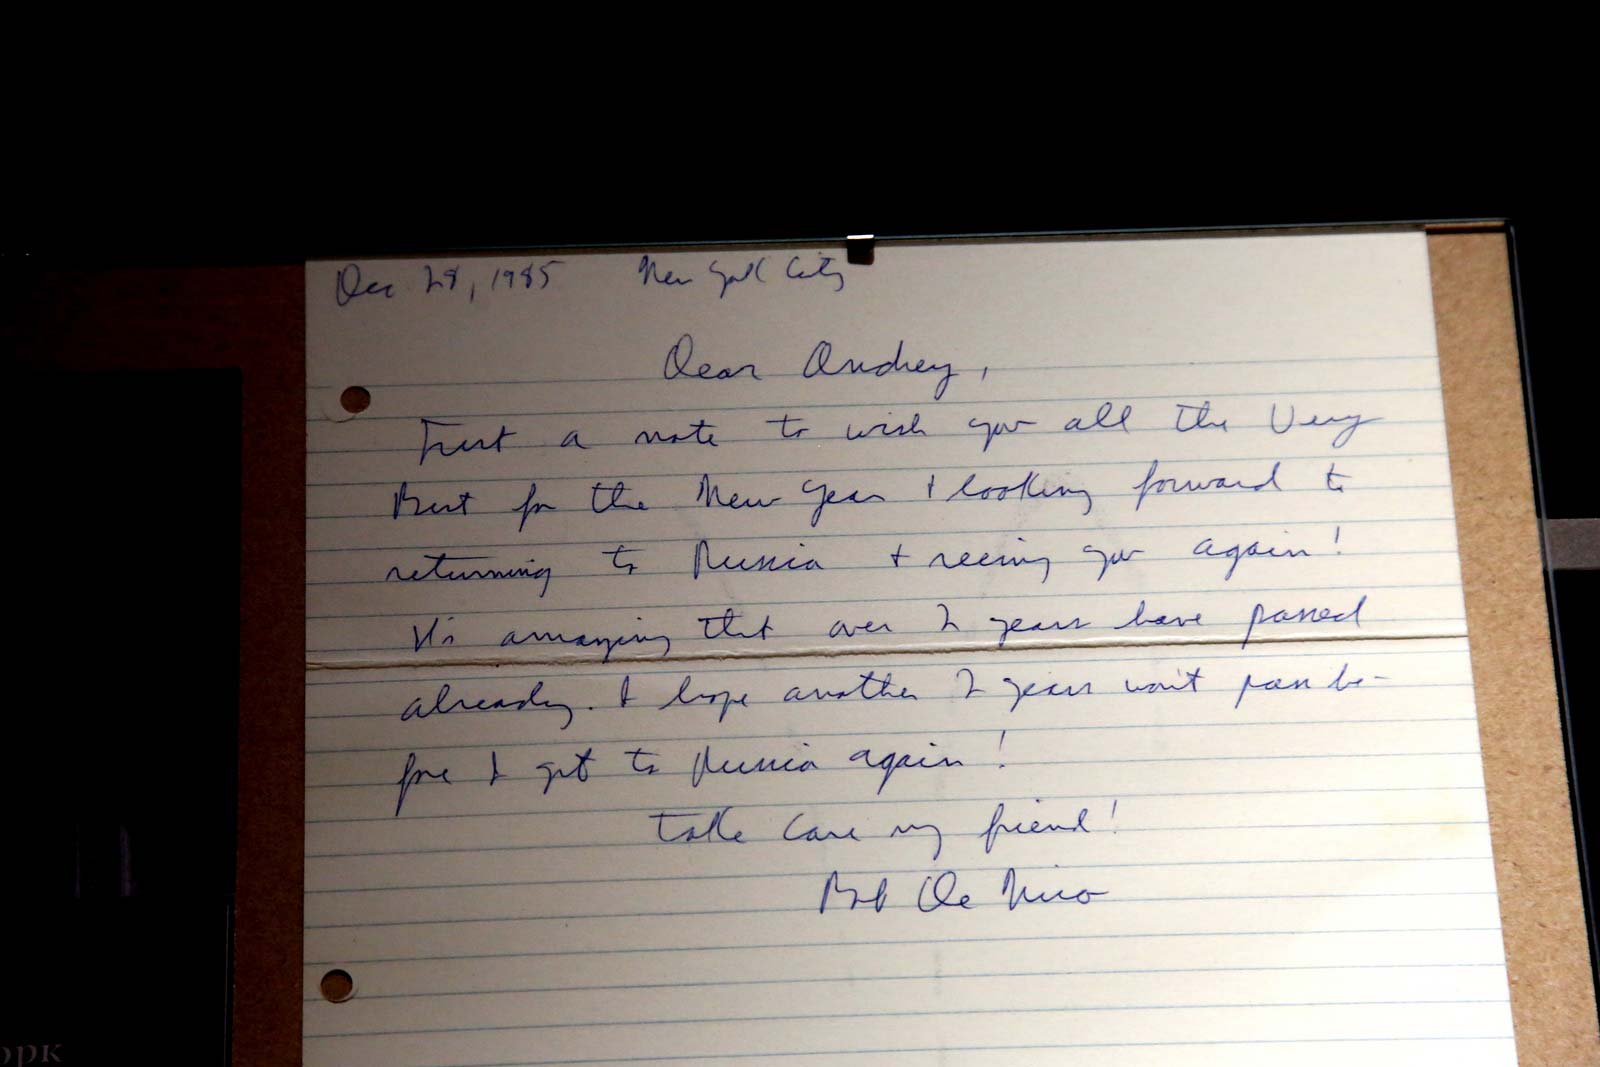 Dec 28, 1985 New York City
Dear Andrey,
Just a note to wish you all the Very
Best for the New Year + looking forward to
returning to Russia + seeing you again!
It's amazing that over 2 years have passed
already. I hope another 2 years won't pass be-
fore I get to Russia again!
Take care my friend!
Bob De Niro
орк